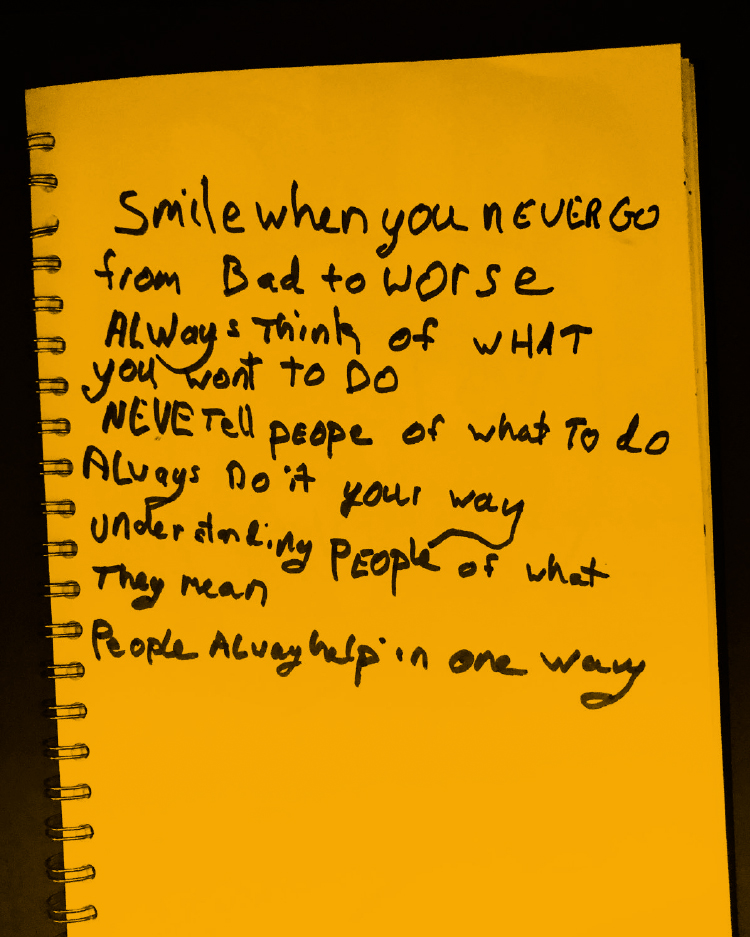 Smile when you nEVER GO
from Bad to worse
ALWays Think of WHAT
you wont to DO
NEVE Tell peope of what To do
ALways Do it your way
understanding PEOple of what
They mean
People ALway help in one way